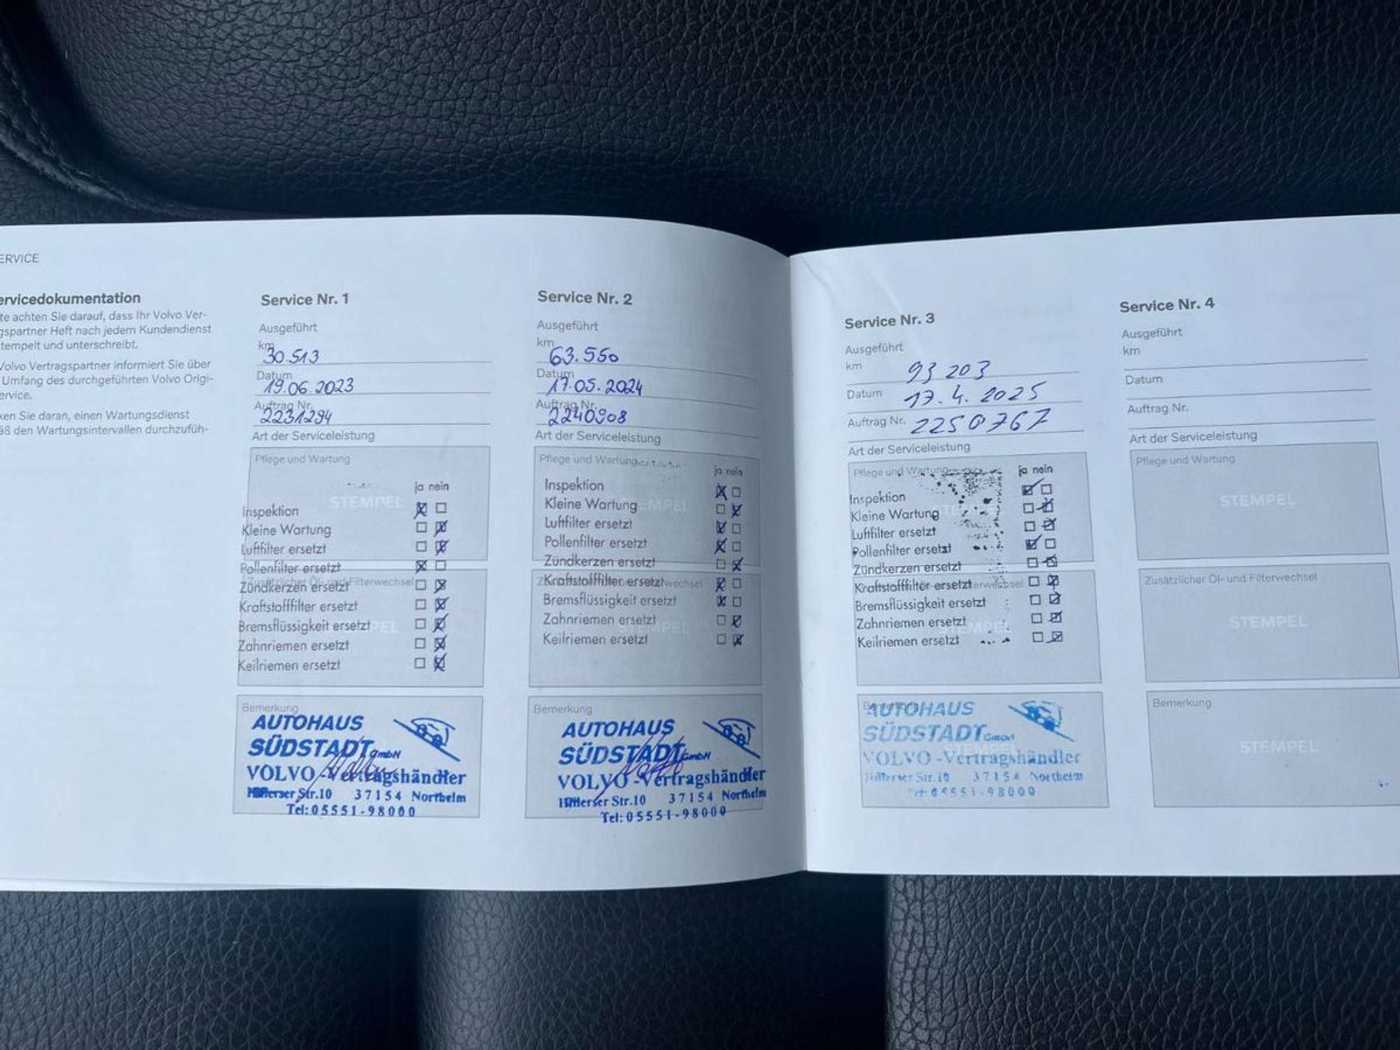 ERVICE
ervicedokumentation
te achten Sie darauf, dass Ihr Volvo Ver-
gspartner Heft nach jedem Kundendienst
tempelt und unterschreibt.
Volvo Vertragspartner informiert Sie über
Umfang des durchgeführten Volvo Origi-
ervice.
ken Sie daran, einen Wartungsdienst
äß den Wartungsintervallen durchzufüh-
Service Nr. 1
Ausgeführt
km 30.513
Datum 19.06.2023
Auftrag Nr. 2231294
Art der Serviceleistung
Pflege und Wartung
STEMPEL
ja nein
Inspektion
Kleine Wartung
Luftfilter ersetzt
Pollenfilter ersetzt
Zusätzlicher Öl- und Filterwechsel
Zündkerzen ersetzt
Kraftstofffilter ersetzt
Bremsflüssigkeit ersetzt
STEMPEL
Zahnriemen ersetzt
Keilriemen ersetzt
Bemerkung
AUTOHAUS
SÜDSTADT GmbH
VOLVO-Vertragshändler
Str.10 37154 Northeim
Tel: 05551-98000
Service Nr. 2
Ausgeführt
km 63.550
Datum 17.05.2024
Auftrag Nr. 2240908
Art der Serviceleistung
Pflege und Wartung
ja nein
Inspektion
Kleine Wartung
STEMPEL
Luftfilter ersetzt
Pollenfilter ersetzt
Zündkerzen ersetzt
Kraftstofffilter ersetzt
Bremsflüssigkeit ersetzt
Zahnriemen ersetzt
Keilriemen ersetzt
Bemerkung
AUTOHAUS
SÜDSTADT GmbH
VOLVO-Vertragshändler
Str.10 37154 Northeim
Tel: 05551-98000
Service Nr. 3
Ausgeführt
km 93 203
Datum 17.4.2025
Auftrag Nr. 2250767
Art der Serviceleistung
Pflege und Wartung
ja nein
Inspektion
Kleine Wartung
Luftfilter ersetzt
Pollenfilter ersetzt
Zündkerzen ersetzt
Kraftstofffilter ersetzt
Bremsflüssigkeit ersetzt
Zahnriemen ersetzt
Keilriemen ersetzt
AUTOHAUS
SÜDSTADT GmbH
STEMPEL
VOLVO-Vertragshändler
Str.10 37154 Northeim
Tel: 05551-98000
Service Nr. 4
Ausgeführt
km
Datum
Auftrag Nr.
Art der Serviceleistung
Pflege und Wartung
STEMPEL
Zusätzlicher Öl- und Filterwechsel
STEMPEL
Bemerkung
STEMPEL